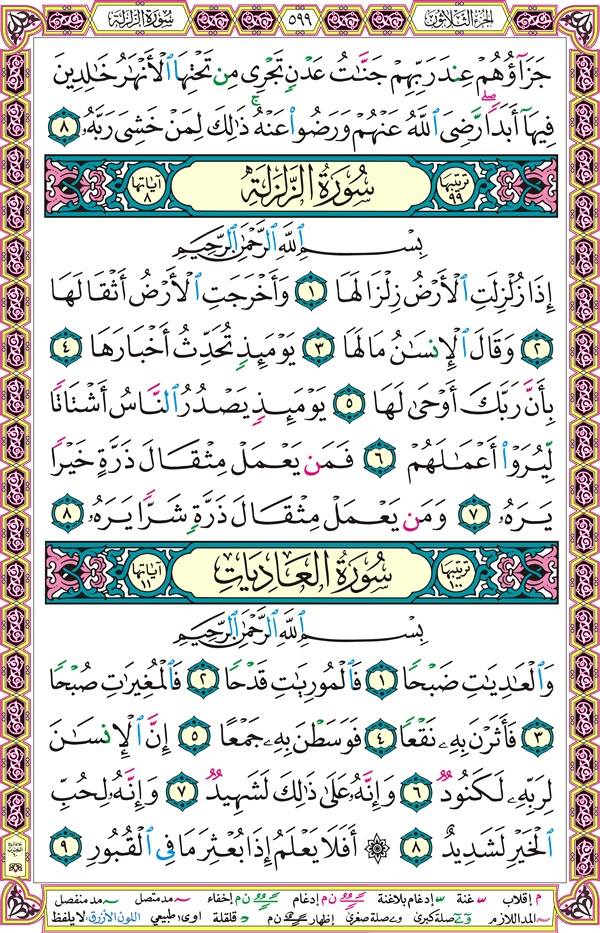 الجزء الثلاثون
٥٩٩
سورة الزلزلة
جَزَآؤُهُمْ عِندَ رَبِّهِمْ جَنَّٰتُ عَدْنٍ تَجْرِى مِن تَحْتِهَا ٱلْأَنْهَٰرُ خَٰلِدِينَ
فِيهَآ أَبَدًا ۖ رَّضِىَ ٱللَّهُ عَنْهُمْ وَرَضُوا۟ عَنْهُ ۚ ذَٰلِكَ لِمَنْ خَشِىَ رَبَّهُۥ ٨
ترتيبها ٩٩
سُورَةُ الزَّلْزَلَةِ
آياتها ٨
بِسْمِ ٱللَّهِ ٱلرَّحْمَٰنِ ٱلرَّحِيمِ
إِذَا زُلْزِلَتِ ٱلْأَرْضُ زِلْزَالَهَا ١ وَأَخْرَجَتِ ٱلْأَرْضُ أَثْقَالَهَا
٢ وَقَالَ ٱلْإِنسَٰنُ مَا لَهَا ٣ يَوْمَئِذٍ تُحَدِّثُ أَخْبَارَهَا ٤
بِأَنَّ رَبَّكَ أَوْحَىٰ لَهَا ٥ يَوْمَئِذٍ يَصْدُرُ ٱلنَّاسُ أَشْتَاتًا
لِّيُرَوْا۟ أَعْمَٰلَهُمْ ٦ فَمَن يَعْمَلْ مِثْقَالَ ذَرَّةٍ خَيْرًا
يَرَهُۥ ٧ وَمَن يَعْمَلْ مِثْقَالَ ذَرَّةٍ شَرًّا يَرَهُۥ ٨
ترتيبها ١٠٠
سُورَةُ العَادِيَاتِ
آياتها ١١
بِسْمِ ٱللَّهِ ٱلرَّحْمَٰنِ ٱلرَّحِيمِ
وَٱلْعَٰدِيَٰتِ ضَبْحًا ١ فَٱلْمُورِيَٰتِ قَدْحًا ٢ فَٱلْمُغِيرَٰتِ صُبْحًا
٣ فَأَثَرْنَ بِهِۦ نَقْعًا ٤ فَوَسَطْنَ بِهِۦ جَمْعًا ٥ إِنَّ ٱلْإِنسَٰنَ
لِرَبِّهِۦ لَكَنُودٌ ٦ وَإِنَّهُۥ عَلَىٰ ذَٰلِكَ لَشَهِيدٌ ٧ وَإِنَّهُۥ لِحُبِّ
ٱلْخَيْرِ لَشَدِيدٌ ٨ ۞ أَفَلَا يَعْلَمُ إِذَا بُعْثِرَ مَا فِى ٱلْقُبُورِ ٩
م إقلاب غنة إدغام بلاغنة ن م إدغام ن م إخفاء مد متصل مد منفصل
المد اللازم صلة كبرى صلة صغرى إظهار ن م قلقلة اوى طبيعي اللون الأزرق: لا يلفظ